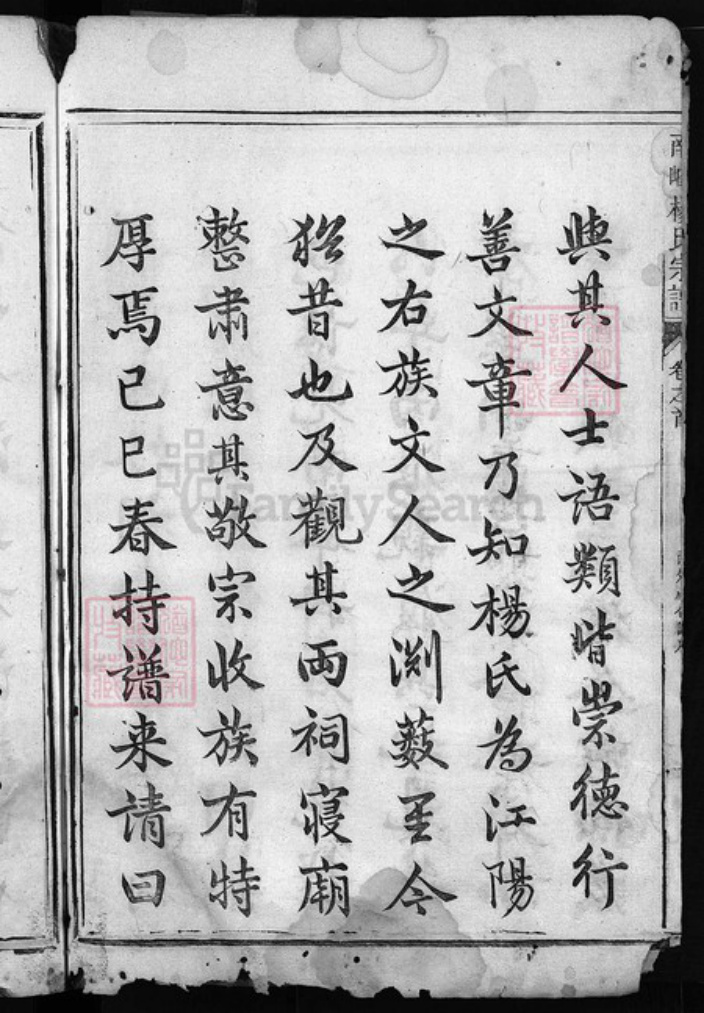 與其人士語類皆崇德行
善文章乃知楊氏為江陽
之右族文人之淵藪至今
猶昔也及觀其両祠寢廟
整肅意其敬宗收族有特
厚焉已巳春持譜来請曰
楊氏宗譜
卷之首
FamilySearch